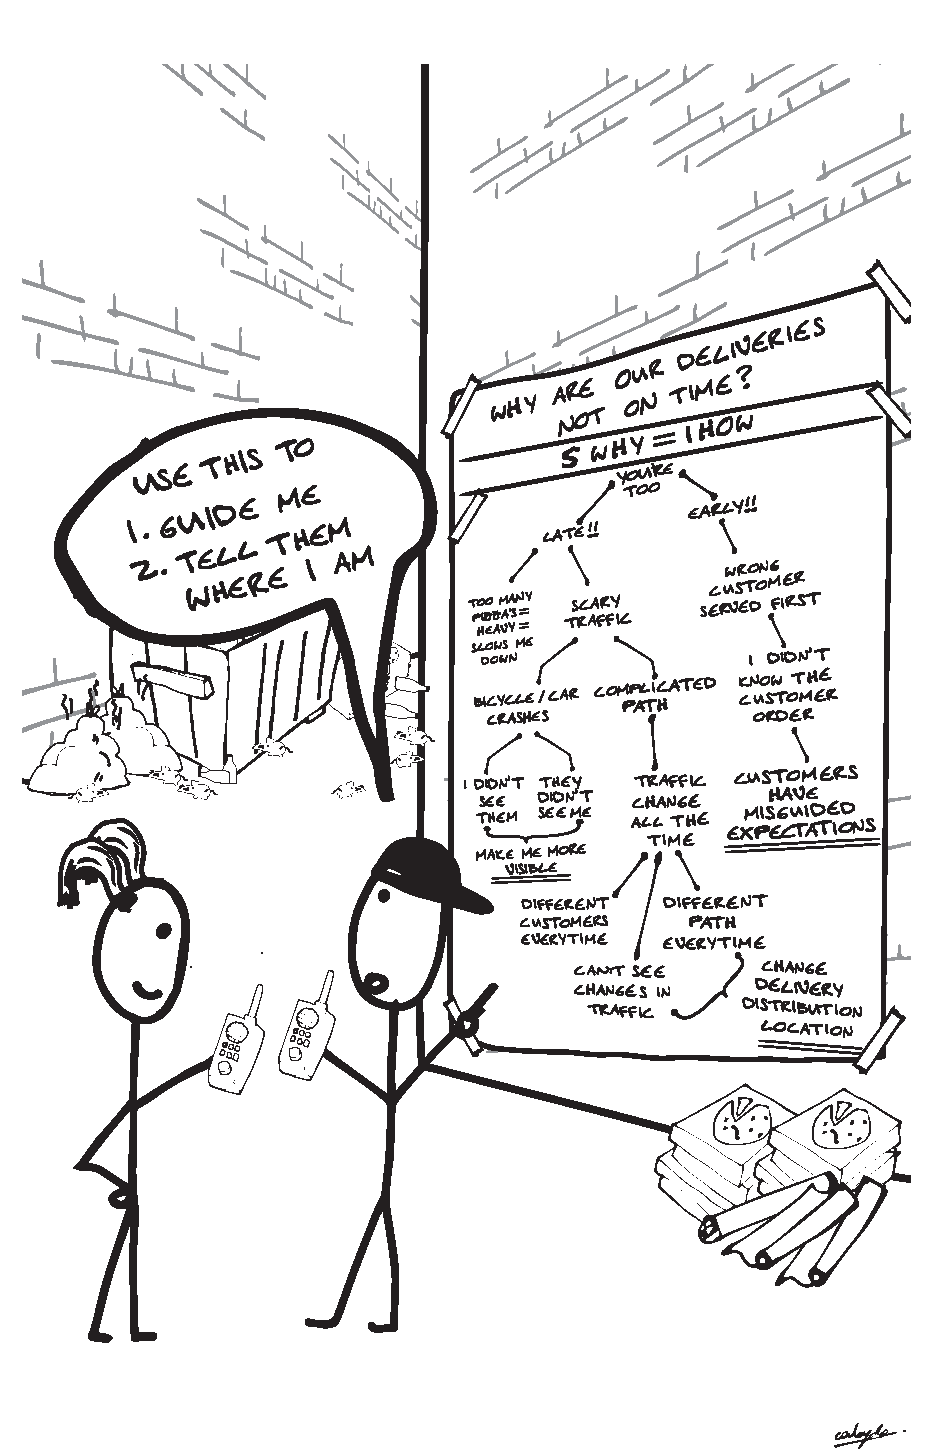 WHY ARE OUR DELIVERIES
NOT ON TIME?
5 WHY = 1 HOW
YOU'RE
TOO
LATE!!
EARLY!!
TOO MANY
PIZZA'S =
HEAVY =
SLOWS ME
DOWN
SCARY
TRAFFIC
WRONG
CUSTOMER
SERVED FIRST
BICYCLE / CAR
CRASHES
COMPLICATED
PATH
I DIDN'T
KNOW THE
CUSTOMER
ORDER
I DIDN'T
SEE
THEM
THEY
DIDN'T
SEE ME
TRAFFIC
CHANGE
ALL THE
TIME
CUSTOMERS
HAVE
MISGUIDED
EXPECTATIONS
MAKE ME MORE
VISIBLE
DIFFERENT
CUSTOMERS
EVERYTIME
DIFFERENT
PATH
EVERYTIME
CAN'T SEE
CHANGES IN
TRAFFIC
CHANGE
DELIVERY
DISTRIBUTION
LOCATION
USE THIS TO
1. GUIDE ME
2. TELL THEM
WHERE I AM